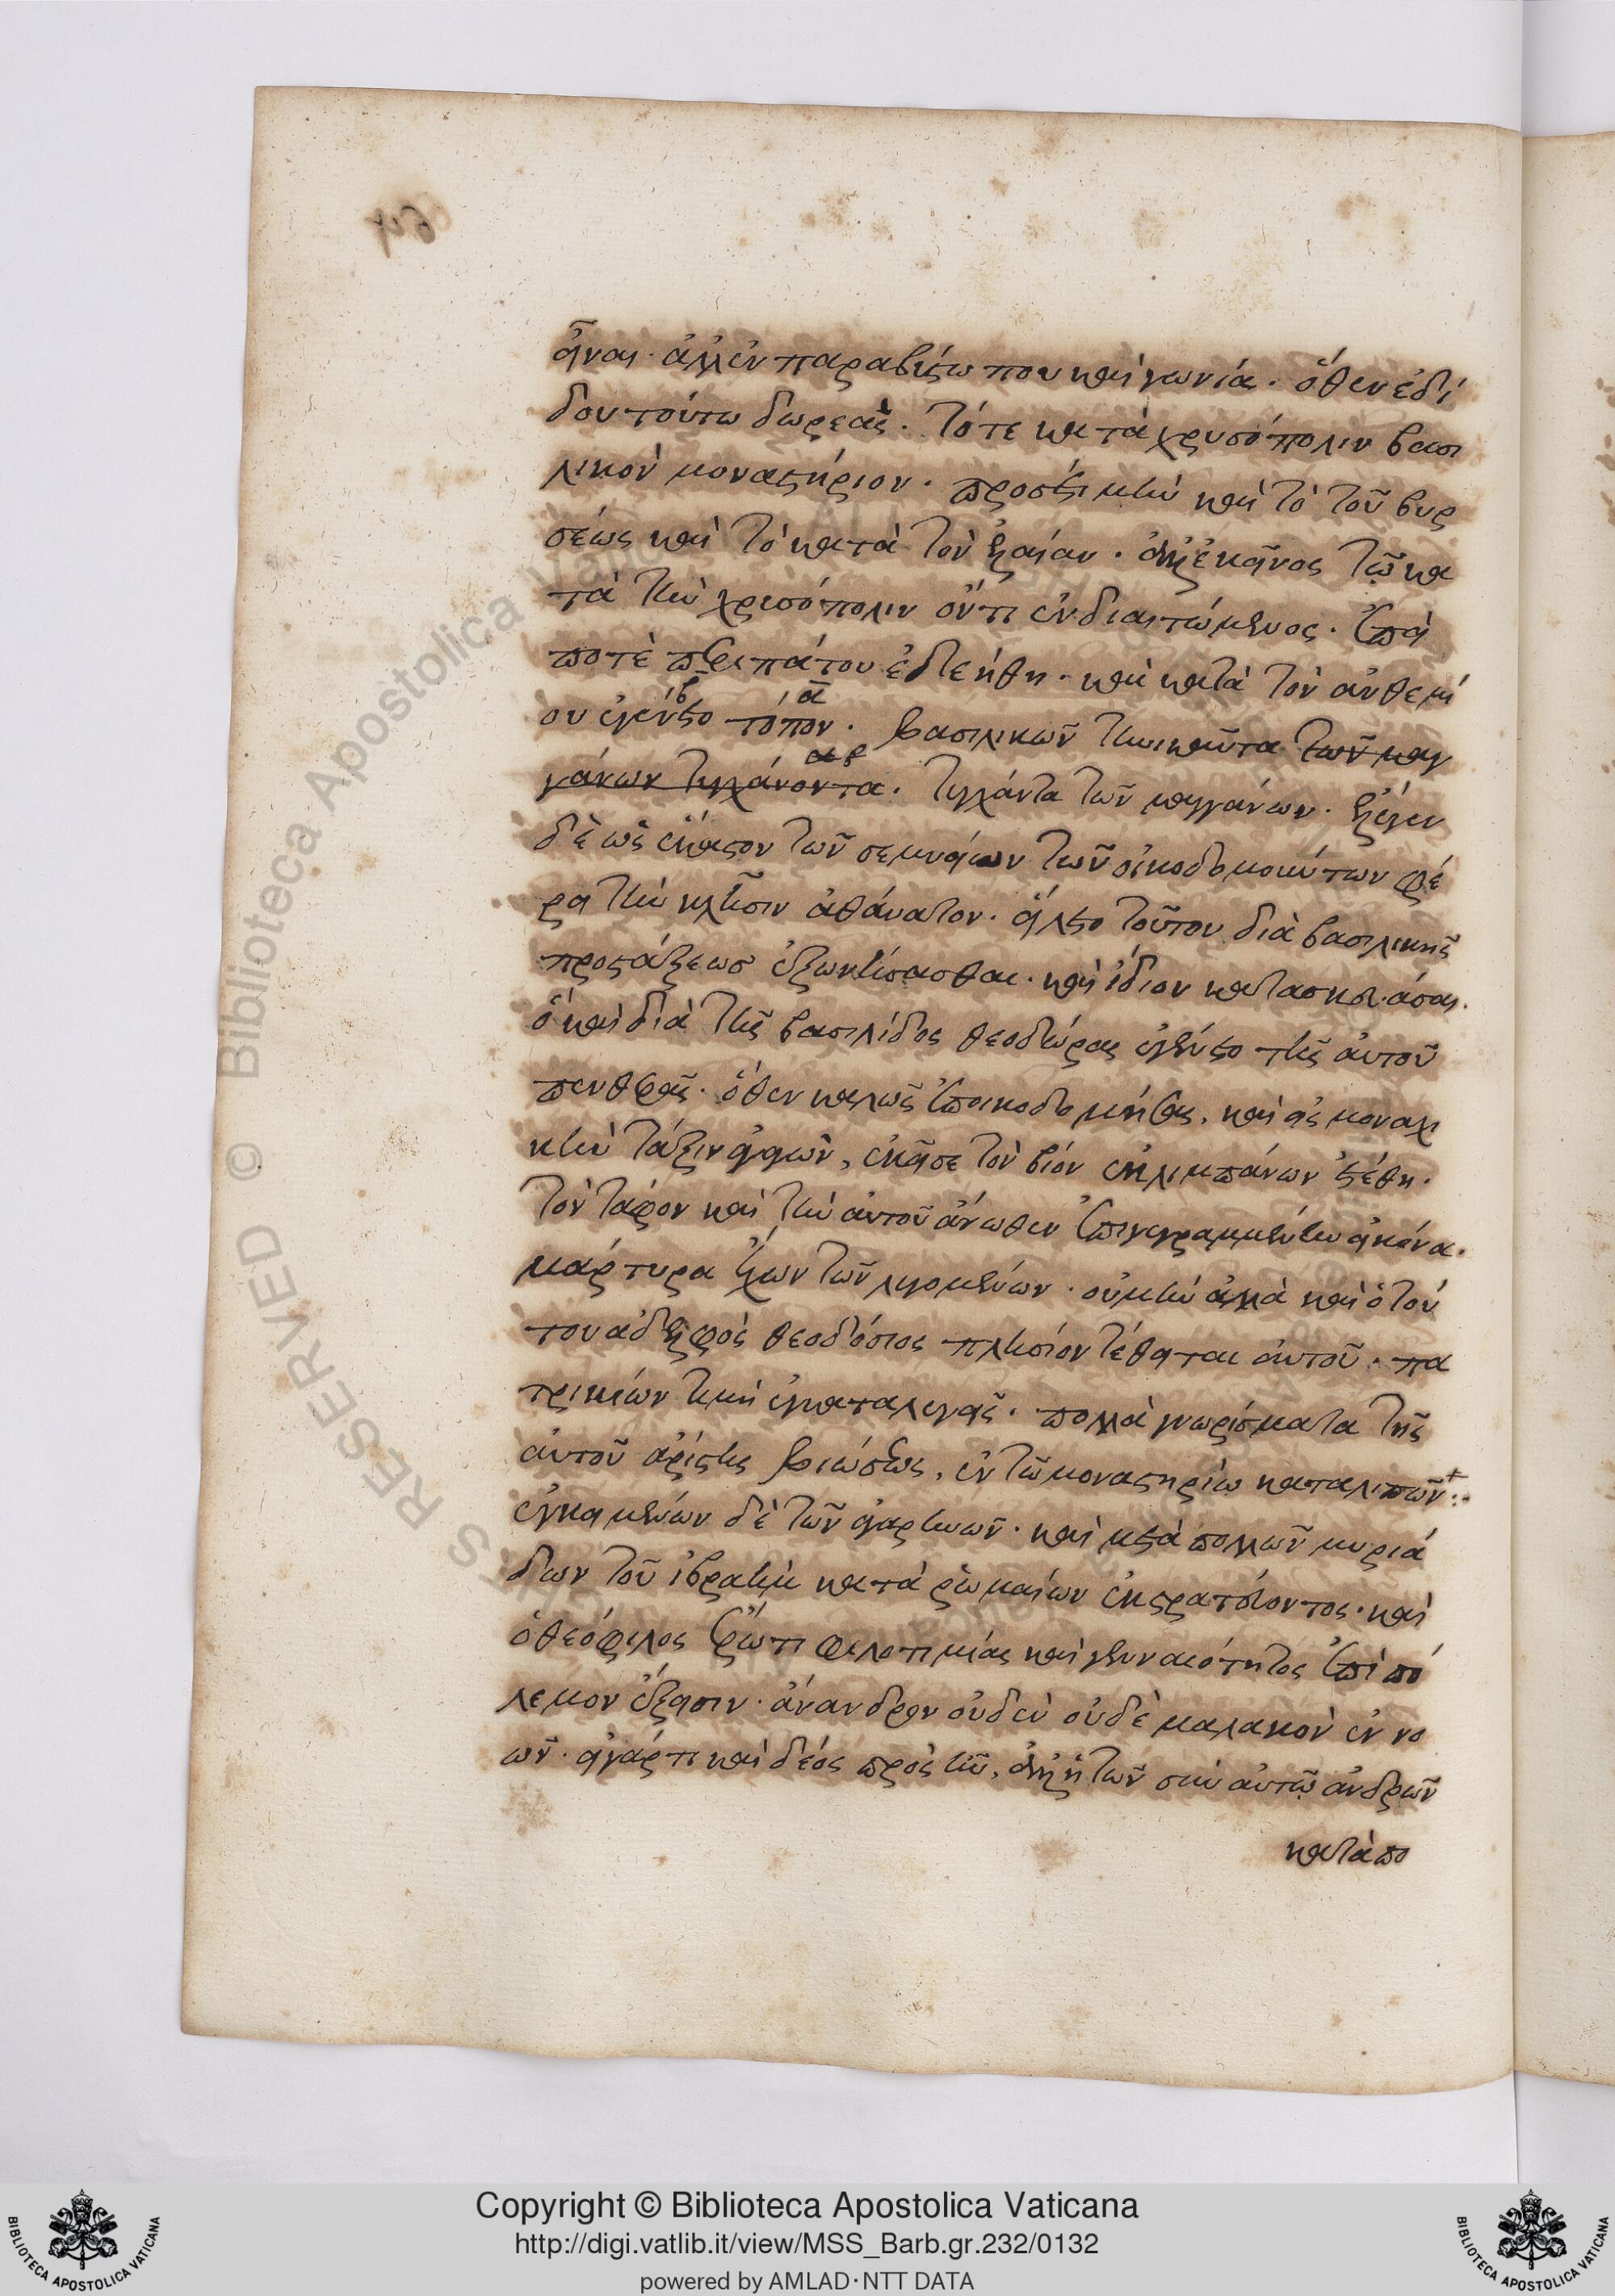 εἶναι· ἀλλ' ἐν παραβύστω που καὶ γωνία· ὅθεν ἐδί
δου τούτω δωρεὰς. τό τε κατὰ χρυσόπολιν βασι
λικὸν μοναστήριον· πρὸς ἔτι μὴν καὶ τὸ τοῦ βυρ
σέως καὶ τὸ κατὰ τὸν ἐλαίαν· ἀλλ' ἐκεῖνος τῷ κα
τὰ τὴν χρισόπολιν ὄντι ἐνδιαιτώμενος· ἐπεί
ποτὲ περιπάτου ἐδεήθη· καὶ κατὰ τὸν ἀνθεμί
ου ἐγένετο τόπον. βασιλικῶν τηνικαῦτα τῶν μαγ
γάνων τυγχάνοντα. τυγχάντα τῶν μαγγάνων· ἔλεγεν
δὲ ὡς ἕκαστον τῶν σεμνείων τῶν οἰκοδομούντων φέ
ρει τὴν κλῆσιν ἀθάνατον· εἵλετο τοῦτον διὰ βασιλικῆς
προστάξεως ἐξωνήσασθαι· καὶ ἴδιον κατασκευάσαι.
ὃ καὶ διὰ τῆς βασιλίδος θεοδώρας ἐγένετο τῆς αὐτοῦ
πενθερᾶς· ὅθεν καλῶς ἐποικοδομήσας, καὶ εἰς μοναχι
κὴν τάξιν
τὸν τάφον καὶ τὴν αὐτοῦ ἄνωθεν ἐπιγεγραμμένην εἰκόνα.
μάρτυρα ἔχων τῶν λεγομένων· οὐ μὴν ἀλλὰ καὶ ὁ τού
του ἀδελφὸς θεοδόσιος πλησίον τέθειται αὐτοῦ· πα
τρικίων τιμῆ ἐγκαταλεγεὶς· πολλὰ γνωρίσματα τῆς
αὐτοῦ ἀρίστης βιώσεως, ἐν τῶ μοναστηρίω καταλιπὼν:+
ἐγκειμένων δὲ τῶν εἰαρινῶν· καὶ μετὰ πολλῶν μυριά
δων τοῦ ἰβραὴμ κατὰ ῥωμαίων ἐκστρατεύοντος· καὶ
ὁ θεόφιλος ἔρωτι φιλοτιμίας καὶ γενναιότητος ἐπὶ πό
λεμον ἔξεισιν· ἄνανδρον οὐδὲν οὐδὲ μαλακὸν ἐν νο
ῶν· εἰ γάρ τι καὶ δέος προσῆν, ἀλλ' ἡ τῶν σὺν αὐτῷ ἀνδρῶν
κατὰ πο